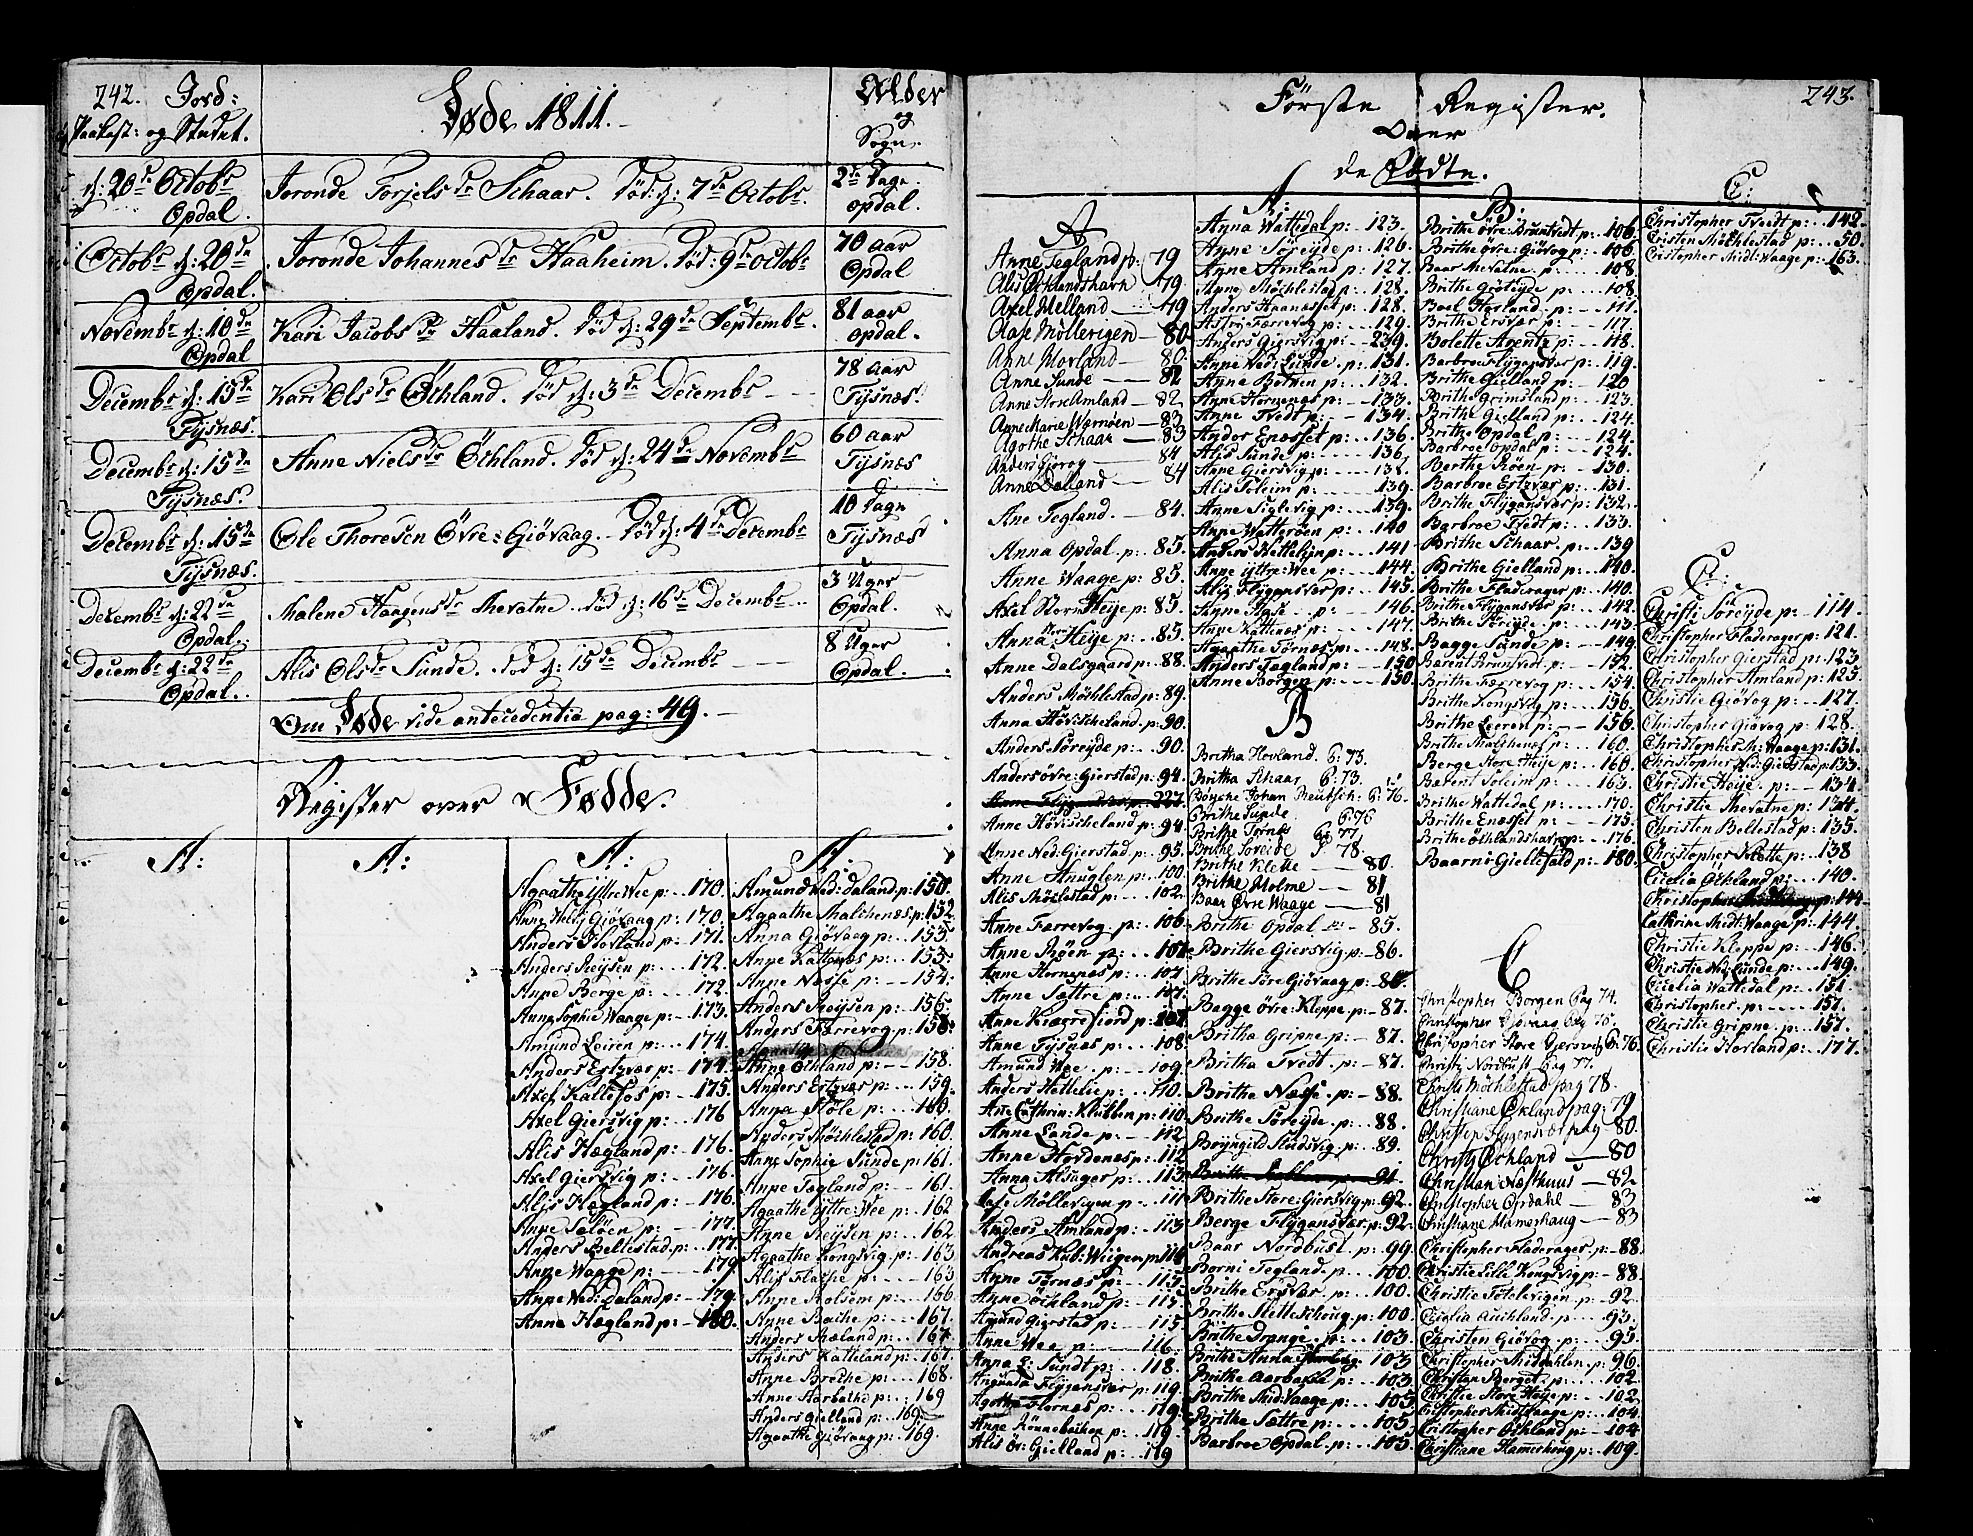 242. Jord:
Paakast: og Stædet.
Døde 1811.
Alder
og
Sogn.
d: 20de Octobr
Opdal.
Joronde Torjels Dr Schaar. Død d: 7de Octobr.
2de Dage
opdal.
Octobr d: 20de
Opdal.
Joronde Johannes Dr Haaheim. Død: 9de octobr
70 aar
Opdal
Novembr d: 10de
Opdal
Kari Jacobs Dr Haaland. Død d: 29de Septembr.
81 aar
opdal.
Decembr d: 15de
Tysnæs.
Kari Ols Dr Öchland. Død d: 3de Decembr
78 aar
Tysnæs.
Decembr d: 15de
Tysnæs.
Anne Niels Dr Öchland. Død d: 24de Novembr
60 aar
Tysnæs
Decembr d: 15de
Tysnæs.
Ole Thoresen Övre-Giövaag. Død d: 4de Decembr
10 Dage
Tysnæs
Decembr d: 22de
Opdal.
Malene Haagens Dr Thevatne. Død d: 16de Decembr
3 Uger
Opdal.
Decembr d: 22de
Opdal.
Alis Ols Dr Sunde. Død d: 15de Decembr
8 Uger
Opdal.
Om Døde vide antecedentia pag: 49.
Register over Fødde.
A:
A:
A:
Agaathe yttre Wee p: 170.
Anne Giövaag p: 170.
Anders Hovland p: 171.
Anders Reysen p: 172.
Anne Berge p: 172.
Anne Sophie Waage p: 173.
Amund Leiren p: 174.
Anders Ertzvær p: 174.
Axel Kattefos p: 175.
Axel Giersvig p: 176
Alis Hægland p: 176.
Axel Giersvig p: 176
Alis Hægland p: 176.
Anne p: 177.
Anders Bellestad p: 177.
Anne Waage p: 179
Anne Ned: Daland p: 179.
Anne Hægland p: 180.
A:
Amund Ned: Daland p: 150.
Agaathe Malthenæs p: 152.
Anna Giövaag p: 153.
Anne Kattenæs p: 153.
Anne Næsse p: 154.
Anders Reysen p: 156.
Anders Færrevog p: 158.
Anne Öchland p: 158.
Anders Ertzvæs p: 159.
Anna Støle p: 160.
Anders Möchlestad p: 160.
Anne Sophie Sunde p: 161.
Anne Tægland p: 161.
Agaathe yttre: Wee p: 162
Anne Reysen p: 162
Agaathe Kongsvig p: 163
Alis Flathe p: 163
Anne Solsem p: 166
Anne Bache p: 167.
Anders Mæland p: 167.
Anders Katteland p: 167.
Anne Brethe p: 168.
Anne Aarbakke p: 169
Anders Gielland p: 169.
Agaathe Giövaag p: 169.
243.
Förste Register.
Over
de Födte.
A
Anne Tegland p: 79
Alis Öchlandshavn 79.
Axel Melland 79
Aase Möllerigen 80
Anne Hovland 80
Anne Sunde 82
Anne Store Amland 82
Anne Marie Wernöen 83
Agothe Schaar 83
Anders Gjerog 84
Anne Dalland 84
Ane Tegland. 84.
Anna Opdal p: 85.
Anne Waage p: 85.
Axel Store Heye p: 85.
Anna Store Heye p: 85.
Anne Dalsgaard p: 88.
Anders Möchlestad p: 89.
Anna Hövischeland p: 90.
Anders Söreyde p: 90.
Anders övre: Gierstad p: 94.
Anne Hövischeland p: 94.
Anne Ned: Gierstad p: 95.
Anne Anuglen p: 100.
Alis Möchlestad p: 102.
Anne Færrevog p: 106.
Anne Röen p: 107
Anne Hornenæs p: 107
Anne Sættre p: 107.
Anne Kiærrefiord p: 107.
Anne Tysnæs p: 108.
Amund Wee p: 109
Anders Hettelie p: 110.
Ane Cathrin: Klubben p: 110.
Anne Lande p: 112
Anne Hovdenæs p: 112
Anna Alsager p: 113
Aase Möllevigen p: 111
Anders Amland p: 113
Andreas p: 114
Anne Tørnæs p: 115
Anne Öchland p: 115.
Amund Gierstad p: 115
Anne Wee p: 116.
Anna S: Sundt p: 118.
Flygansvær p: 119.
Agothe Flornæs p: 119.
Anne Rönnebachen p: 119
Alis öv: Gielland p: 119
A:
Anna Wattedal p: 123.
Anne Söreyde p: 126.
Anne Amland p: 127.
Anne Möchlestad p: 128.
Anders Haanesset p: 128.
Astry Færrevog p: 129.
Anders Giersvig p: 239.
Anne Ned: Lunde p: 131.
Anne Botnen p: 132.
Anne Hornenæs p: 133.
Anne Tvedt p: 134.
Ander Enæsset p: 136.
Alis Sunde p: 136.
Anne Giersvig p: 138.
Alis Soleim p: 139.
Anne Siglevig p: 139.
Anne Watteröen p: 140
Anders Hettelien p: 141
Anne yttre: Wee p: 144.
Alis Flygansvær p: 145.
Anne p: 146.
Anne Kattenæs p: 147.
Agaathe Törnæs p: 148.
Anders Tagland p: 150
Anne Borgen p: 150.
B
Britha Hovland 6:73.
Britha Schaar 6:73.
Johan 6:76.
Brithe Sunde 6:76
Brithe Tornæs 6:77.
Brithe Soreide p: 78.
Brithe Klette 80.
Brithe Molme 81
Baar Övre Waage 81
Brithe Opdal 85.
Brithe Giersvig p: 86.
Brithe Töre Giövaag p: 86.
Bagge övre: Kleppe p: 87.
Britha Gripne p: 87.
Britha Tvedt p: 87.
Brithe Næsse p: 88.
Brithe Söreyde p: 88.
Bryngild Sindsvig p: 89.
Brithe Store: Giersvig p: 92.
Berge Flygansvær p: 92.
Baar Nordbust p: 99.
Borni Tegland p: 100.
Brithe Ersvær p: 100.
Brithe p: 100.
Brithe Drange p: 103.
Brithe Anna 103
Brithe Aarbakke p: 103.
Brithe Mid: Waage p: 105
Brithe Sættre p: 105
Barbroe Opdal p: 105.
B:
Brithe övre: Bruntvedt p: 106.
Brithe övre: Giövog p: 106.
Baar Thevatne p: 108.
Brithe Gröteyde p: 108.
Boel Hægland p: 111.
Brithe Ersvær p: 117
Bolette Arentz p: 118.
Barbroe Flygensvær p: 119.
Brithe Gielland p: 120
Brithe Grimsland p: 123.
Brithe Gielland p: 124.
Brithe Opdal p: 124.
Barbroe Opdal p: 124.
Berthe Röen p: 130.
Barbroe Ertzvær p: 131.
Brithe Flygansvær p: 132.
Barbroe Tvedt p: 133.
Brithe Schaar p: 139
Brithe Gielland p: 140
Brithe Fladerager p: 140.
Brithe Flygansvær p: 142.
Brithe Söreyde p: 143.
Bagge Sunde p: 149.
Bærent Bruntvedt p: 152.
Brithe Færrevog p: 154.
Brithe Kongsvog p: 156.
Brithe Leeren p: 156.
Brithe Malthenæs p: 160.
Berge Store Heye p: 160.
Bærent Soleim p: 163.
Brithe Wattedal p: 170.
Brithe Enæsset p: 175.
Brithe Öchlandshavn p: 176.
Baarni Giellefald p: 180.
C
Christopher Borgen Pag 74.
Christopher Giövaag Pag 75.
Christopher Store Gjersvig P: 76.
Christi Nordbust Pag 77.
Christi Möchlestad pag 78.
Christiane Ökland pag: 79
Christen Flygensvær pag 80.
Christi Öchland 80
Christian Næsthuus 82
Christopher Opdahl 83
Christiane Hamershaug 83
Christopher Fladerager p: 88.
Christie Lille Kongsvig p: 88.
Christie Töttevigen p: 92.
Cicelia Auchland p: 93.
Christen Giövog p: 95.
Christopher Middahlen p: 96.
Christen Berget p: 102.
Christie Store Heye p: 102.
Cristopher Midtwaage p: 104
Cristopher Öchland p: 104
Christiane Hamerhoug p: 109.
C:
Christopher Tvedt p: 142.
Cristen Möchlestad p: 50.
Cristopher Midt: Waage p: 163.
C:
Christi Söreyde p: 114.
Christopher Fladerager p: 121.
Christopher Gierstad p: 123
Christopher Amland p: 125
Christie Giövog p: 127.
Christopher Giövog p: 128.
Christopher M: Waage p: 131.
Christopher Ned: Gierstad p: 133.
Christie Heye p: 134
Christie Thevatne p: 134.
Christen Bellestad p: 135.
Christopher Klette p: 138
Cicelia Öchland p: 140.
Christopher p: 144
Cathrine Midt: Waage p: 144.
Christie Kleppe p: 146.
Christie Ned: Lunde p: 149.
Cicelia Wattedal p: 151.
Christopher p: 157.
Christie Gripne p: 157.
Christie Hovland p: 177.